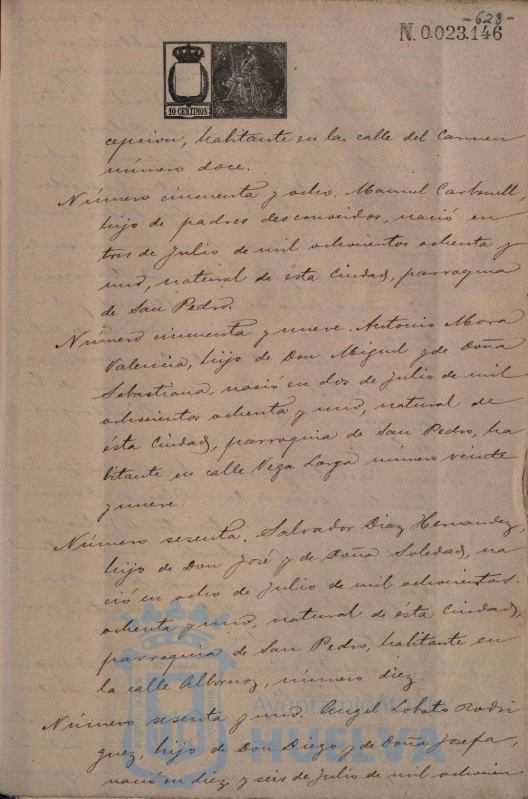 -628-
N. 0.023.146
10 CENTIMOS
cepcion, habitante en la calle del Carmen
número doce.
Número cincuenta y ocho. Manuel Carbonell,
hijo de padres desconocidos, nació en
tres de Julio de mil ochocientos ochenta y
uno, natural de ésta Ciudad, parroquia
de San Pedro.
Número cincuenta y nueve. Antonio Mora
Valencia, hijo de Don Miguel y de Doña
Sebastiana, nació en dos de Julio de mil
ochocientos ochenta y uno, natural de
ésta Ciudad, parroquia de San Pedro, ha
bitante en calle Vega Larga número veinte
y nueve.
Número sesenta. Salvador Diaz Hernandez,
hijo de Don José y de Doña Soledad, na
ció en ocho de Julio de mil ochocientos
ochenta y uno, natural de ésta Ciudad,
parroquia de San Pedro, habitante en
la calle Albornoz, número diez.
Número sesenta y uno. Angel Lobato Rodri
guez, hijo de Don Diego y de Doña Josefa,
nació en diez y seis de Julio de mil ochocien
Ayuntamiento de
HUELVA